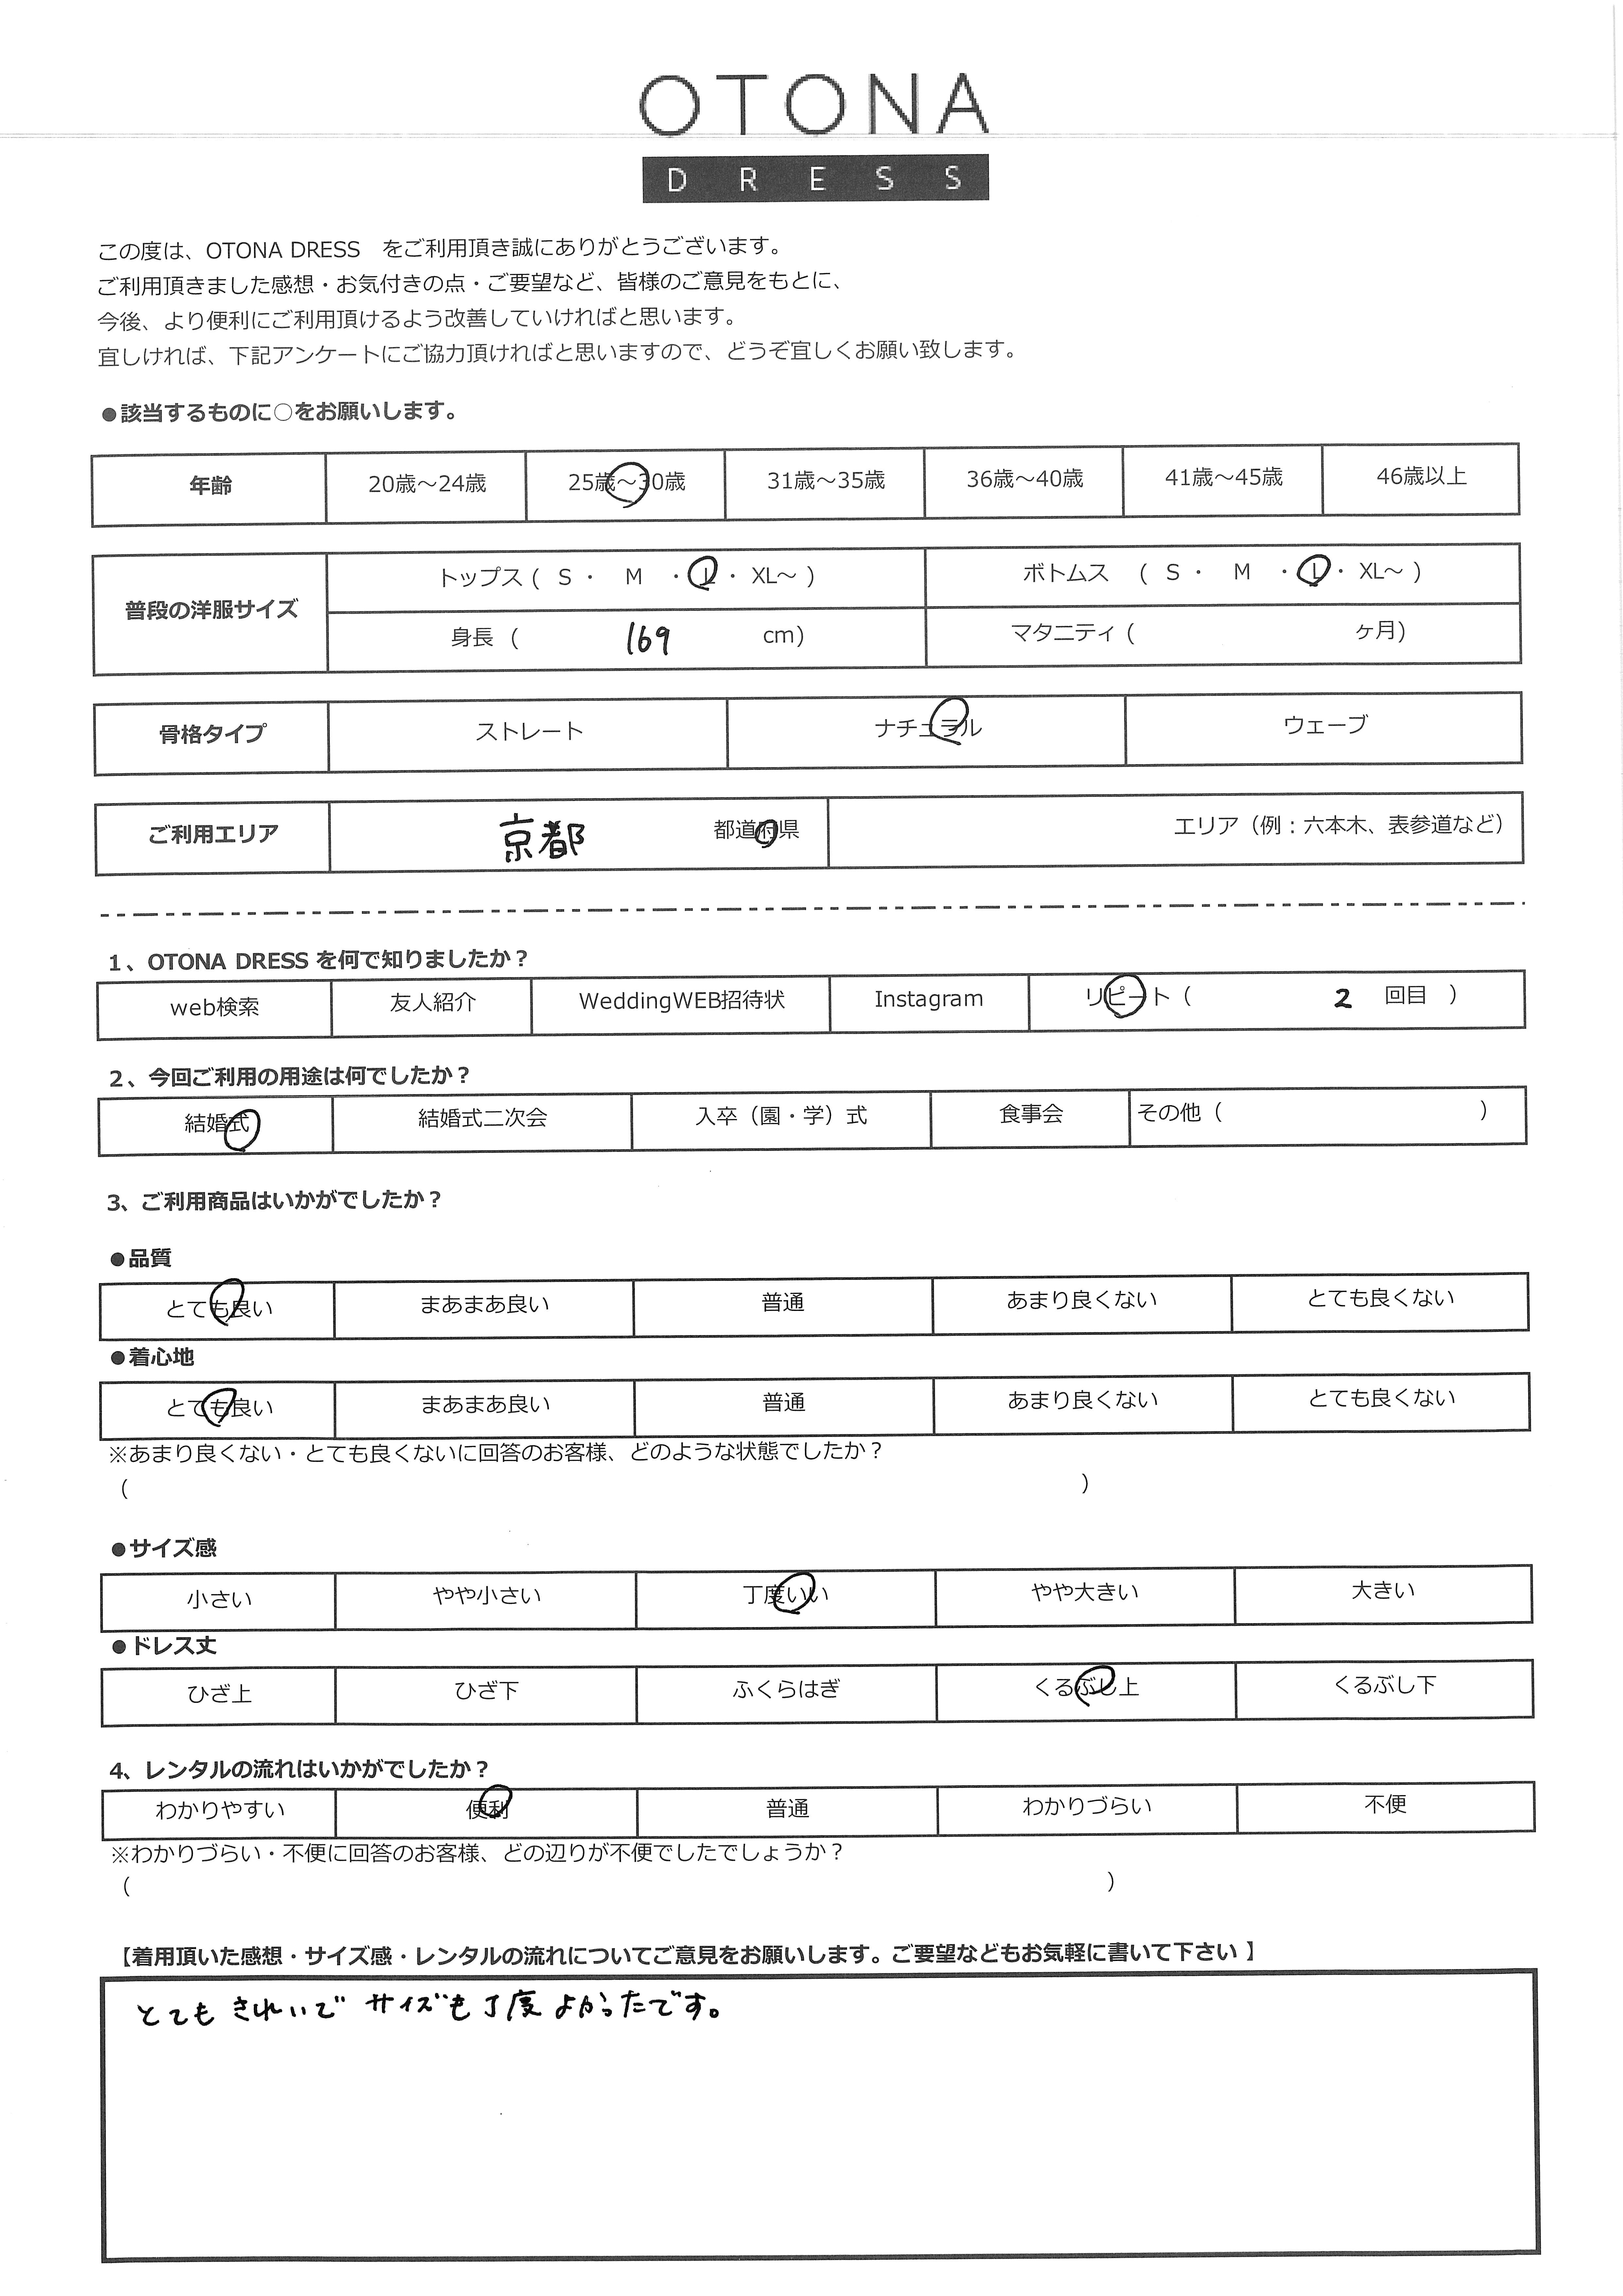 OTONA
DRESS
この度は、OTONA DRESS　をご利用頂き誠にありがとうございます。
ご利用頂きました感想・お気付きの点・ご要望など、皆様のご意見をもとに、
今後、より便利にご利用頂けるよう改善していければと思います。
宜しければ、下記アンケートにご協力頂ければと思いますので、どうぞ宜しくお願い致します。
●該当するものに○をお願いします。
年齢 20歳～24歳 25歳～30歳 31歳～35歳 36歳～40歳 41歳～45歳 46歳以上
普段の洋服サイズ
トップス ( S ・ M ・ L ・ XL～ ) ボトムス ( S ・ M ・ L ・ XL～ )
身長 ( 169 cm) マタニティ ( ヶ月)
骨格タイプ ストレート ナチュラル ウェーブ
ご利用エリア 京都 都道府県 エリア（例：六本木、表参道など）
1、OTONA DRESS を何で知りましたか？
web検索 友人紹介 WeddingWEB招待状 Instagram リピート（ 2 回目 ）
2、今回ご利用の用途は何でしたか？
結婚式 結婚式二次会 入卒（園・学）式 食事会 その他（ ）
3、ご利用商品はいかがでしたか？
●品質
とても良い まあまあ良い 普通 あまり良くない とても良くない
●着心地
とても良い まあまあ良い 普通 あまり良くない とても良くない
※あまり良くない・とても良くないに回答のお客様、どのような状態でしたか？
（ ）
●サイズ感
小さい やや小さい 丁度いい やや大きい 大きい
●ドレス丈
ひざ上 ひざ下 ふくらはぎ くるぶし上 くるぶし下
4、レンタルの流れはいかがでしたか？
わかりやすい 便利 普通 わかりづらい 不便
※わかりづらい・不便に回答のお客様、どの辺りが不便でしたでしょうか？
（ ）
【着用頂いた感想・サイズ感・レンタルの流れについてご意見をお願いします。ご要望などもお気軽に書いて下さい 】
とても きれいで サイズも 丁度 よかったです。